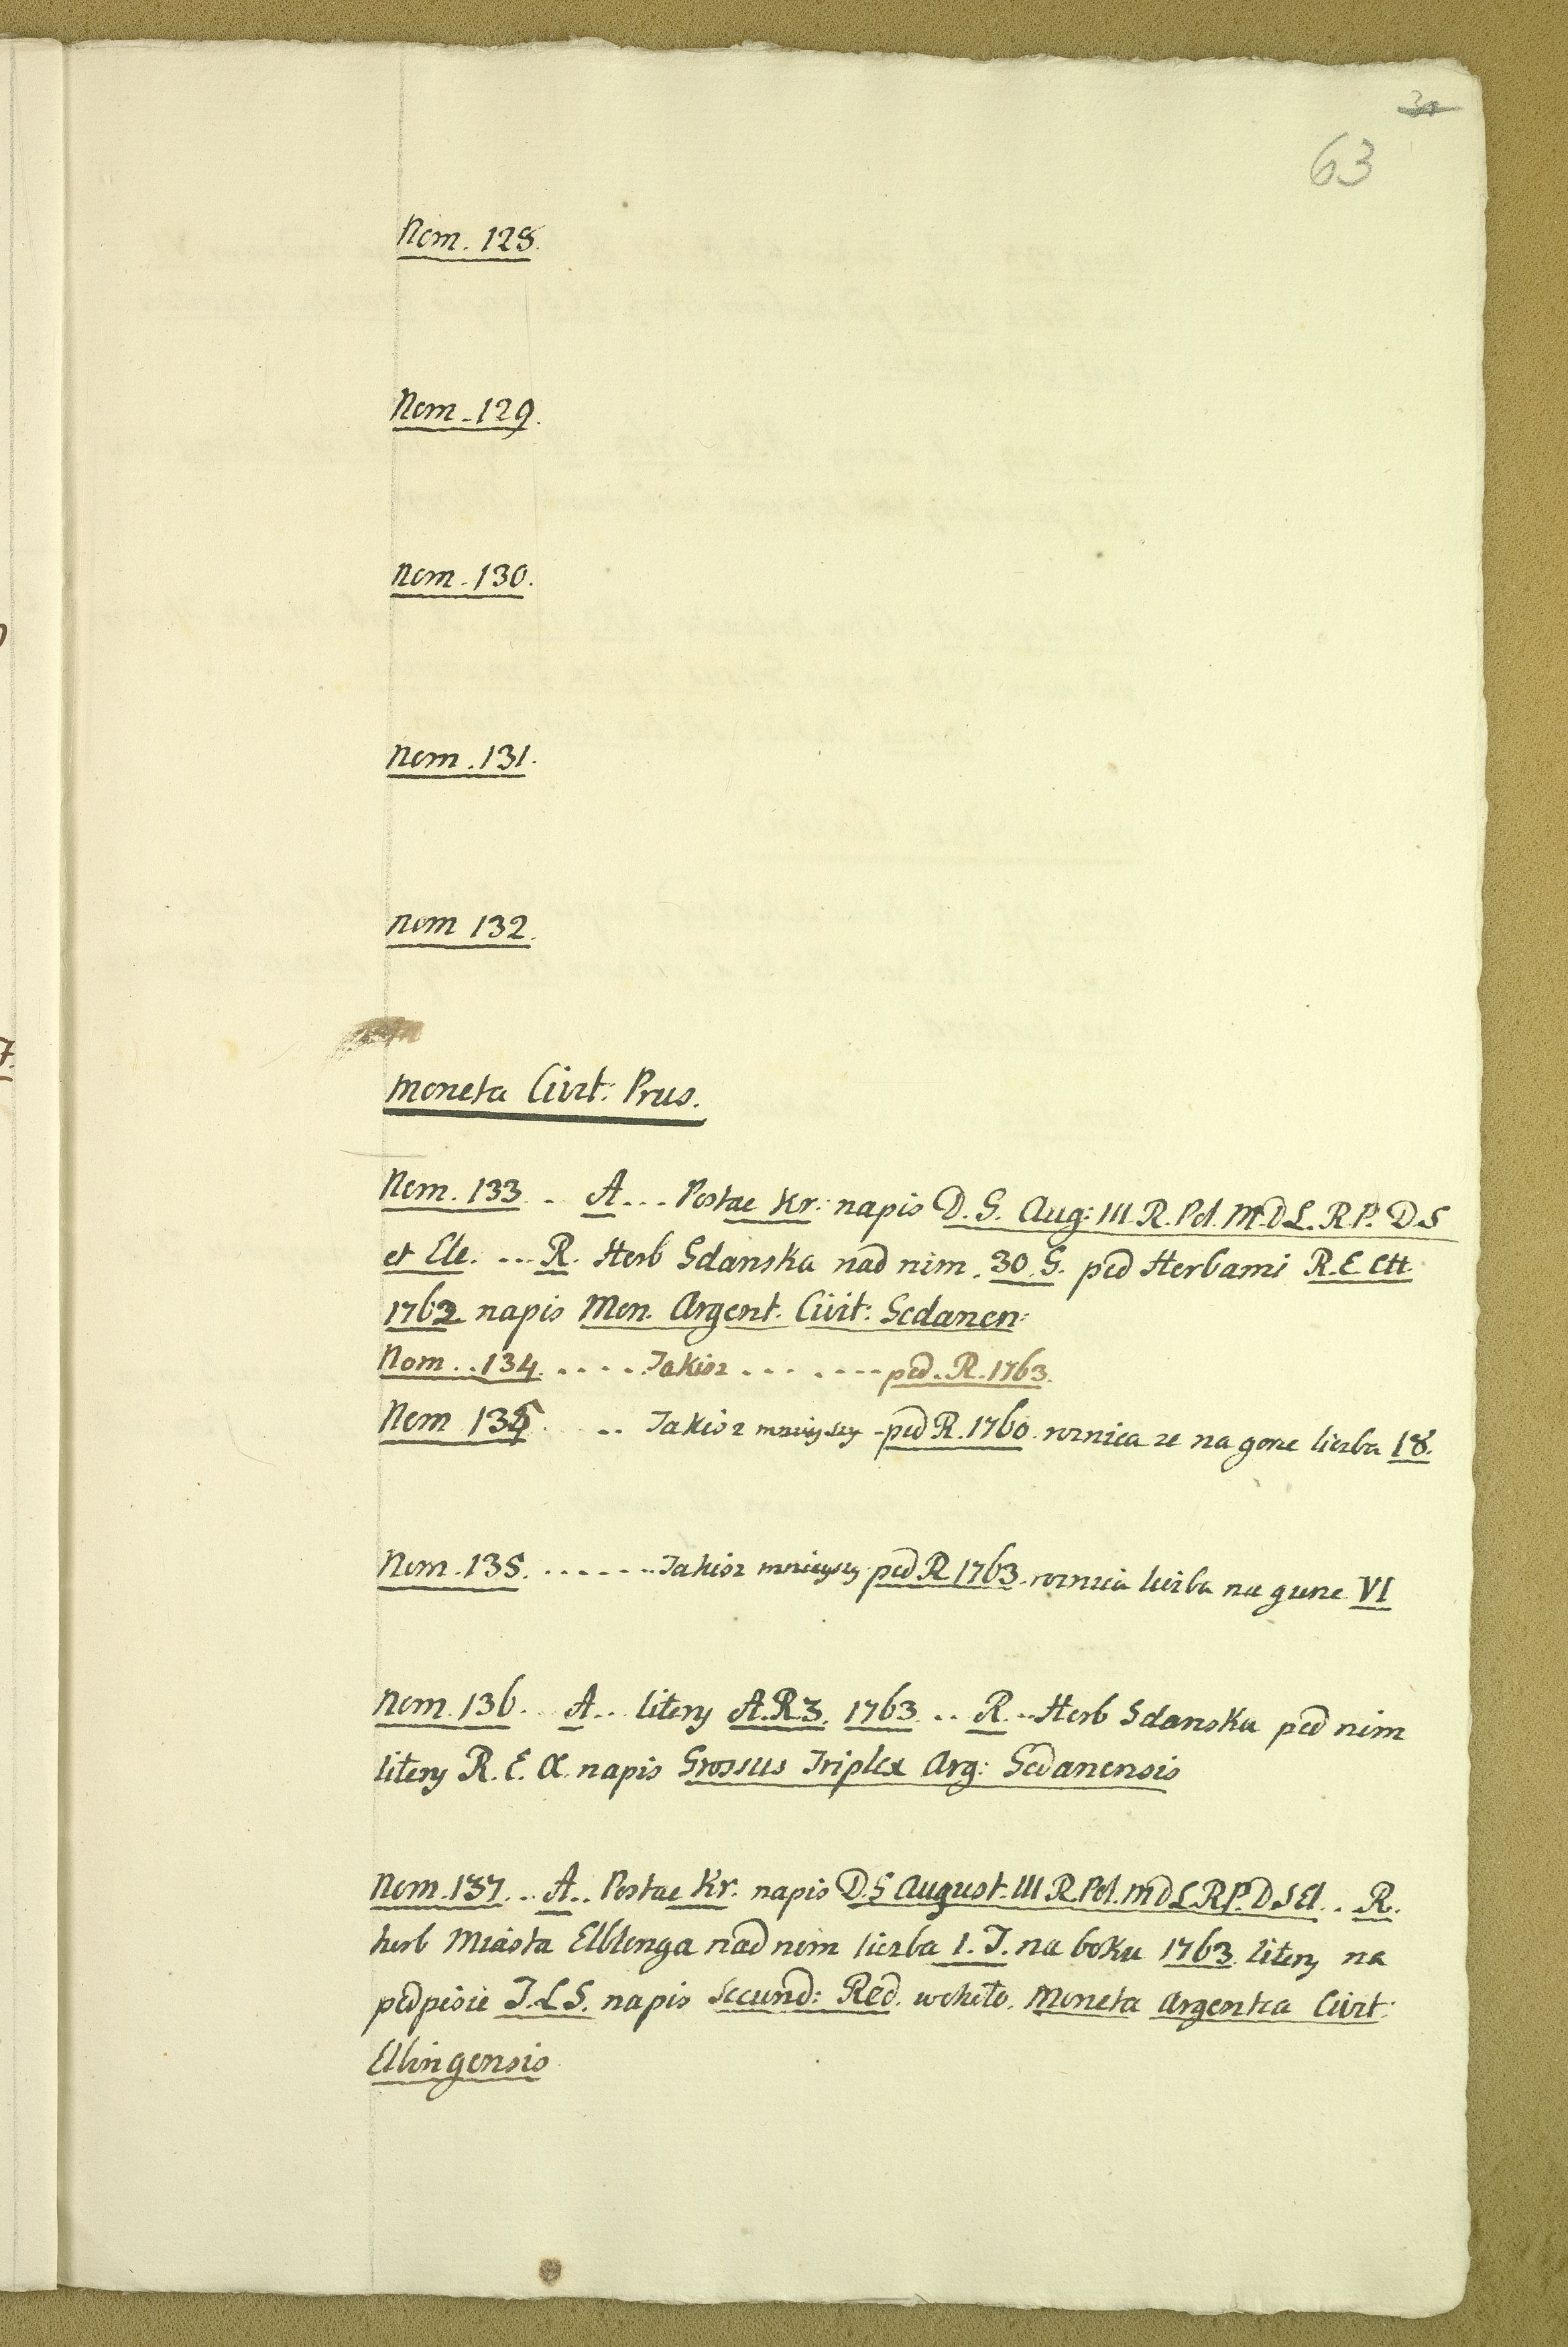 63
Nom. 128.
Nom. 129.
Nom. 130.
Nom. 131.
Nom 132.
Moneta Civit: Prus.
Nom. 133 .. A... Postac Kr: napis D. G. Aug: III. R. Pol. M.D L. R. P. D.S
et Ele. ... R. Herb Gdanska nad nim . 30 . G. pod Herbami R. E
1762 napis Mon. Argent. Civit: Gedanen:
Nom .. 134. .... Jakisz ... .... pod . R. 1763.
Nom 134. .. Jakisz mnieyszy - pod R. 1760. roznica ze na gorze liczba 18.
Nom. 135. ....... Jakisz mnieyszy pod R 1763. roznica liczba na gurze VI
Nom. 136. A.. litery A.R.3. 1763 .. R... Herb Gdanska pod nim
litery R. E. napis Grossus Triplex Arg: Gedanensis
Nom. 137... A.. Postac Kr. napis D.G August. III R. Pol. M D L. R P. D S El .. R.
herb Miasta Elblenga nad nim liczba 1. T. na boku 1763 litery na
podpisie I.L S. napis Secund: Red. wokoło. Moneta Argentea Civit:
Elbingensis